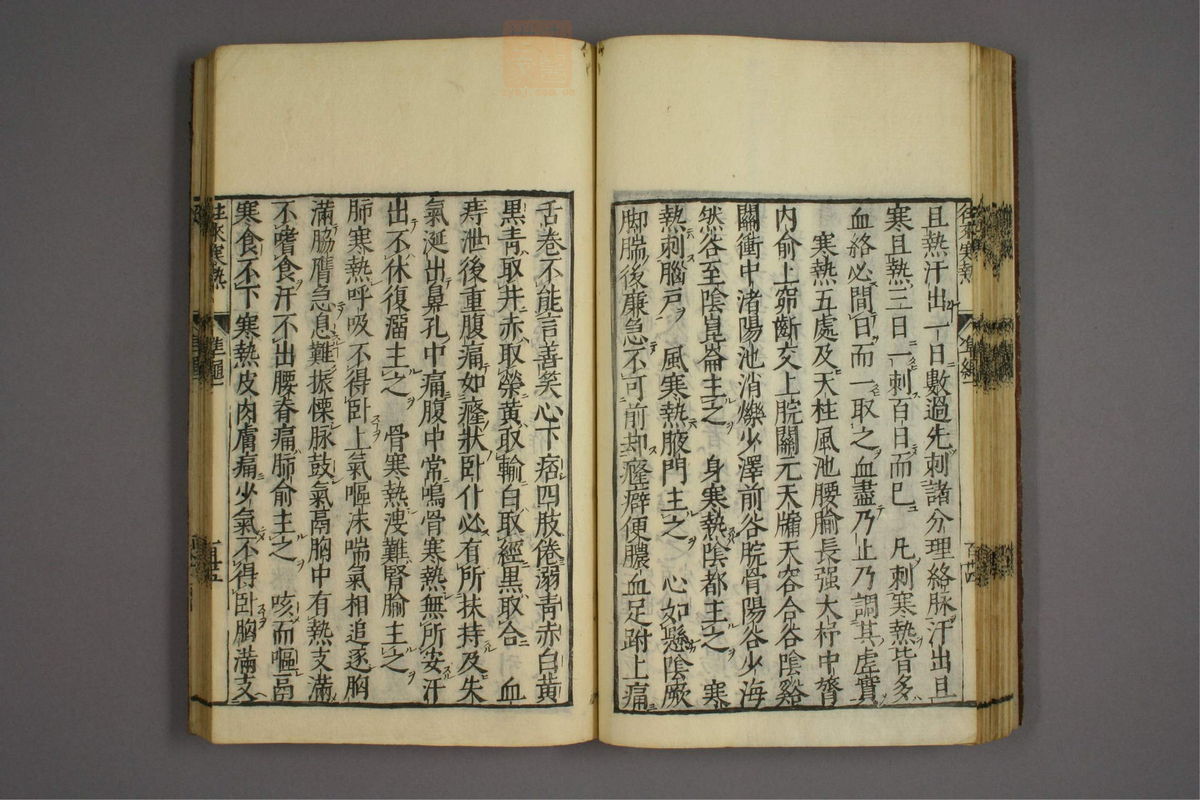 且熱汗出一日數過先刺諸分理絡脉汗出且
寒且熱三日一刺百日而已　凡刺寒熱皆多
血絡必間日而一取之血盡乃止乃調其虚實
寒熱五處及天柱風池腰腧長强大杼中膂
内俞上窌齗交上脘關元天牖天容合谷陰谿
關衝中渚陽池消爍少澤前谷脘骨陽谷少海
然谷至陰崑崙主之　身寒熱陰都主之　寒
熱刺腦戸　風寒熱腋門主之　心如懸陰厥
脚腨後廉急不可前却癃癖便膿血足跗上痛
舌卷不能言善笑心下痞四肢倦溺青赤白黄
黒青取井赤取滎黄取輸白取經黒取合　血
痔泄後重腹痛如癃狀卧仆必有所扶持及朱
氣涎出鼻孔中痛腹中常鳴骨寒熱無所安汗
出不休復溜主之　骨寒熱溲難腎腧主之
肺寒熱呼吸不得卧上氣嘔沫喘氣相追逐胸
滿脇膺急息難振慄脉鼓氣鬲胸中有熱支滿
不嗜食汗不出腰脊痛肺俞主之　咳而嘔鬲
寒食不下寒熱皮肉膚痛少氣不得卧胸滿支
往來寒熱